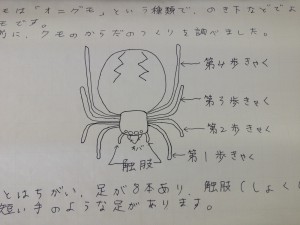 モは「オニグモ」という種類で、のき下などでよ
モです。
前に、クモのからだのつくりを調べました。
第4歩きゃく
第3歩きゃく
第2歩きゃく
第1歩きゃく
キバ
触肢
とはちがい、足が8本あり、触肢(しょくし
短い手のような足があります。